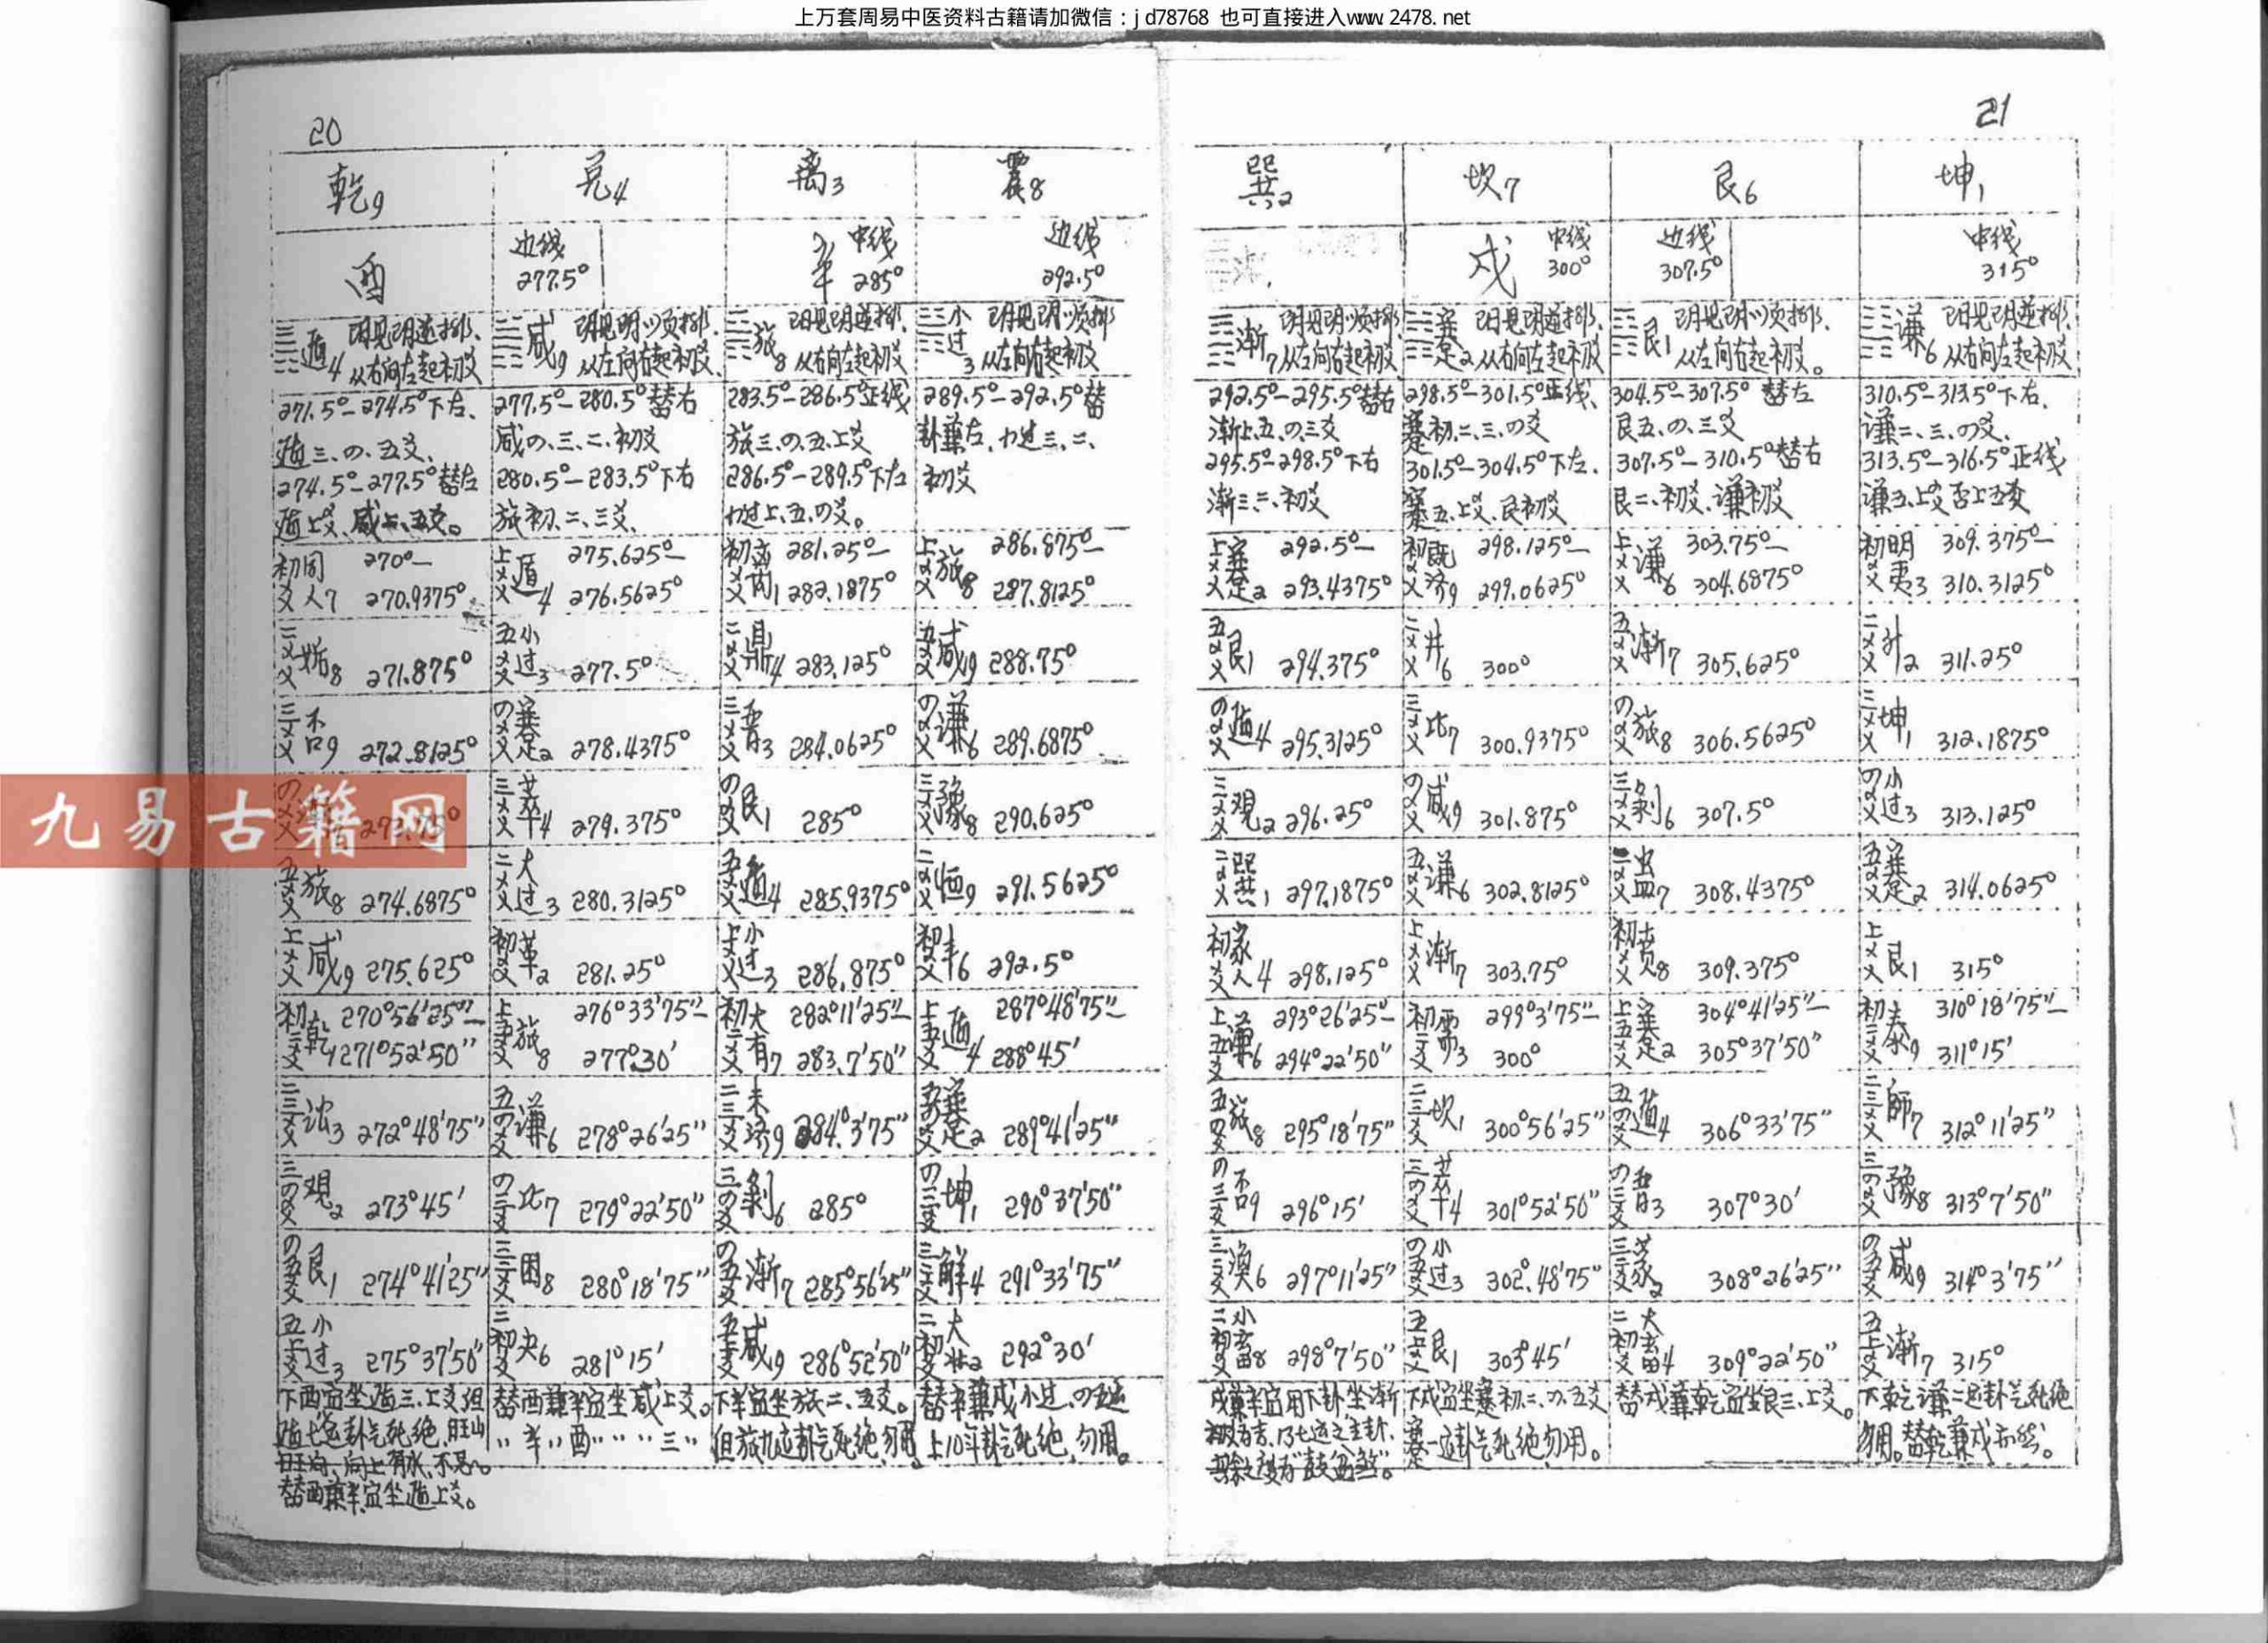 上万套周易中医资料古籍请加微信：jd78768 也可直接进入www.2478.net
20
乾9 兑4 离3 震8
酉 边线 277.5° 辛 中线 285° 边线 292.5°
遁4 阴见阴逆排、从右向左起初爻
咸9 阴见阴顺排、从左向右起初爻、
旅8 阴见阴逆排、从右向左起初爻
小过3 阴见阴顺排 从左向右起初爻
271.5°—274.5°下右、
遁三、の、五爻、
274.5°—277.5°替左
遁上爻、咸上、五爻。
277.5°—280.5°替右
咸の、三、二、初爻
280.5°—283.5°下右
旅初、二、三爻、
283.5°—286.5°正线
旅三、の、五、上爻
286.5°—289.5°下左
小过上、五、の爻。
289.5°—292.5°替
卦兼左、小过三、二、
初爻
初爻 同人7 270°—270.9375°
上爻 遁4 275.625°—276.5625°
初爻 离1 281.25°—282.1875°
上爻 旅8 286.875°—287.8125°
二爻 姤8 271.875°
五爻 小过3 277.5°
二爻 鼎4 283.125°
五爻 咸9 288.75°
三爻 否9 272.8125°
の爻 蹇2 278.4375°
三爻 晋3 284.0625°
の爻 谦6 289.6875°
九易古籍网
三爻 萃4 279.375°
の爻 艮1 285°
三爻 豫8 290.625°
五爻 旅8 274.6875°
二爻 大过3 280.3125°
五爻 遁4 285.9375°
二爻 恒9 291.5625°
上爻 咸9 275.625°
初爻 革2 281.25°
上爻 小过3 286.875°
初爻 丰6 292.5°
初二爻 乾1 270°56'25"—271°52'50"
上五爻 旅8 276°33'75"—277°30'
初二爻 大有7 282°11'25"—283.7'50"
上五爻 遁4 287°48'75"—288°45'
二三爻 讼3 272°48'75"
五の爻 谦6 278°26'25"
二三爻 未济9 284°3'75"
五の爻 蹇2 289°41'25"
三の爻 观2 273°45'
の三爻 比7 279°22'50"
三の爻 剥6 285°
の三爻 坤1 290°37'50"
の五爻 艮1 274°41'25"
三二爻 困8 280°18'75"
の五爻 渐7 285°56'25"
三二爻 解4 291°33'75"
五上爻 小过3 275°37'50"
二初爻 夬6 281°15'
五上爻 咸9 286°52'50"
二初爻 大壮2 292°30'
下酉宜坐遁三、上爻,但
遁七运卦气死绝,旺山
旺向,向上有水,不忌。
替酉兼辛,宜坐遁上爻。
替酉兼辛宜坐咸上爻。
〃辛〃酉〃〃〃三〃
下辛宜坐旅二、五爻。
但旅九运卦气死绝勿用
替辛兼戌小过、の五运
上10年卦气死绝,勿用。
21
巽2 坎7 艮6 坤1
戌 中线 300° 边线 307.5° 中线 315°
渐7 阴见阴顺排 从左向右起初爻
蹇2 阴见阴逆排、从右向左起初爻
艮1 阴见阴顺排、从左向右起初爻。
谦6 阴见阴逆排、从右向左起初爻
292.5°—295.5°替右
渐上、五、の、三爻
295.5°—298.5°下右
渐三、二、初爻
298.5°—301.5°正线、
蹇初、二、三、の爻
301.5°—304.5°下左、
蹇五、上爻、艮初爻
304.5°—307.5°替左
艮五、の、三爻
307.5°—310.5°替右
艮二、初爻、谦初爻
310.5°—313.5°下右、
谦二、三、の爻、
313.5°—316.5°正线
谦五、上爻 否上五爻
上爻 蹇2 292.5°—293.4375°
初爻 既济9 298.125°—299.0625°
上爻 谦6 303.75°—304.6875°
初爻 明夷3 309.375°—310.3125°
五爻 艮1 294.375°
二爻 井6 300°
五爻 渐7 305.625°
二爻 升2 311.25°
の爻 遁4 295.3125°
三爻 比7 300.9375°
の爻 旅8 306.5625°
三爻 坤1 312.1875°
三爻 观2 296.25°
の爻 咸9 301.875°
三爻 剥6 307.5°
の爻 小过3 313.125°
二爻 巽1 297.1875°
五爻 谦6 302.8125°
二爻 蛊7 308.4375°
五爻 蹇2 314.0625°
初爻 家人4 298.125°
上爻 渐7 303.75°
初爻 贲8 309.375°
上爻 艮1 315°
上五爻 谦6 293°26'25"—294°22'50"
初二爻 需3 299°3'75"—300°
上五爻 蹇2 304°41'25"—305°37'50"
初二爻 泰9 310°18'75"—311°15'
五の爻 旅8 295°18'75"
二三爻 坎1 300°56'25"
五の爻 遁4 306°33'75"
二三爻 師7 312°11'25"
の三爻 否9 296°15'
三の爻 萃4 301°52'50"
の三爻 晋3 307°30'
三の爻 豫8 313°7'50"
三二爻 涣6 297°11'25"
の五爻 小过3 302°48'75"
三二爻 蒙2 308°26'25"
の五爻 咸9 314°3'75"
二初爻 小畜8 298°7'50"
五上爻 艮1 303°45'
二初爻 大畜4 309°22'50"
五上爻 渐7 315°
戌兼辛宜用下卦坐渐
初爻为吉,乃七运之主卦、
下戌宜坐蹇初、二、の、五爻
蹇一运卦气死绝勿用。
替戌兼乾宜坐艮三、上爻。
下乾谦二运卦气死绝
勿用。替乾兼戌亦然。